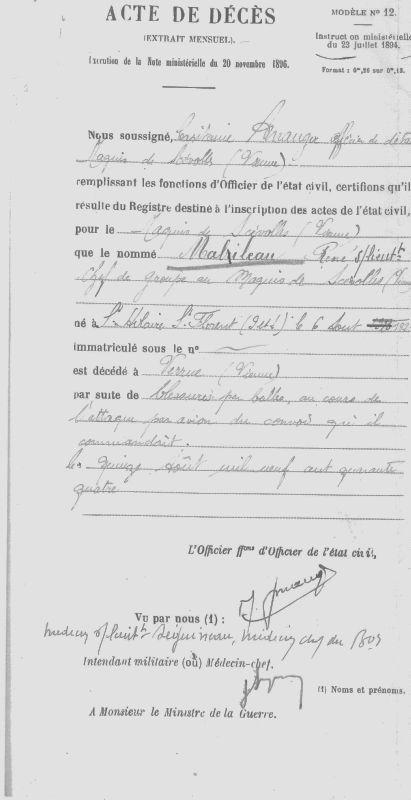 ACTE DE DÉCÈS
(EXTRAIT MENSUEL).
Exécution de la Note ministérielle du 20 novembre 1896.
MODÈLE No 12.
Instruction ministérielle
du 23 juillet 1894.
Format : 0m,26 sur 0m,18.
Nous soussigné, officier de
Maquis de Scévolles (Vienne)
remplissant les fonctions d'Officier de l'état civil, certifions qu'il
résulte du Registre destiné à l'inscription des actes de l'état civil,
pour le Maquis de Scévolles (Vienne)
que le nommé René s/lieutt
Chef de groupe au Maquis de Scévolles
né à St Hilaire St Florent le 6 Aout
immatriculé sous le no
est décédé à Verrue (Vienne)
par suite de blessures par balles, au cours de
l'attaque par avion du convoi qu'il
commandait.
le quinze Août mil neuf cent quarante
quatre
L'Officier ffons d'Officier de l'état civil,
Vu par nous (1) :
médecin s/lieutt médecin chef du
Intendant militaire (ou) Médecin-chef.
(1) Noms et prénoms.
A Monsieur le Ministre de la Guerre.